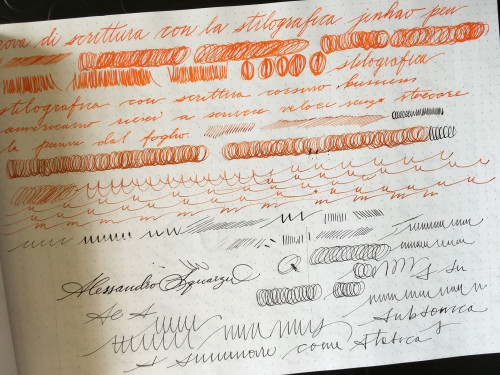 prova di scrittura con la stilografica jinhao pen
stilografica
stilografica con scrittura corsivo business
americano riesci a scrivere veloci senza staccare
la penna dal foglio.
Alessandro Squarzi
su
Ae A
subsonica
come statica